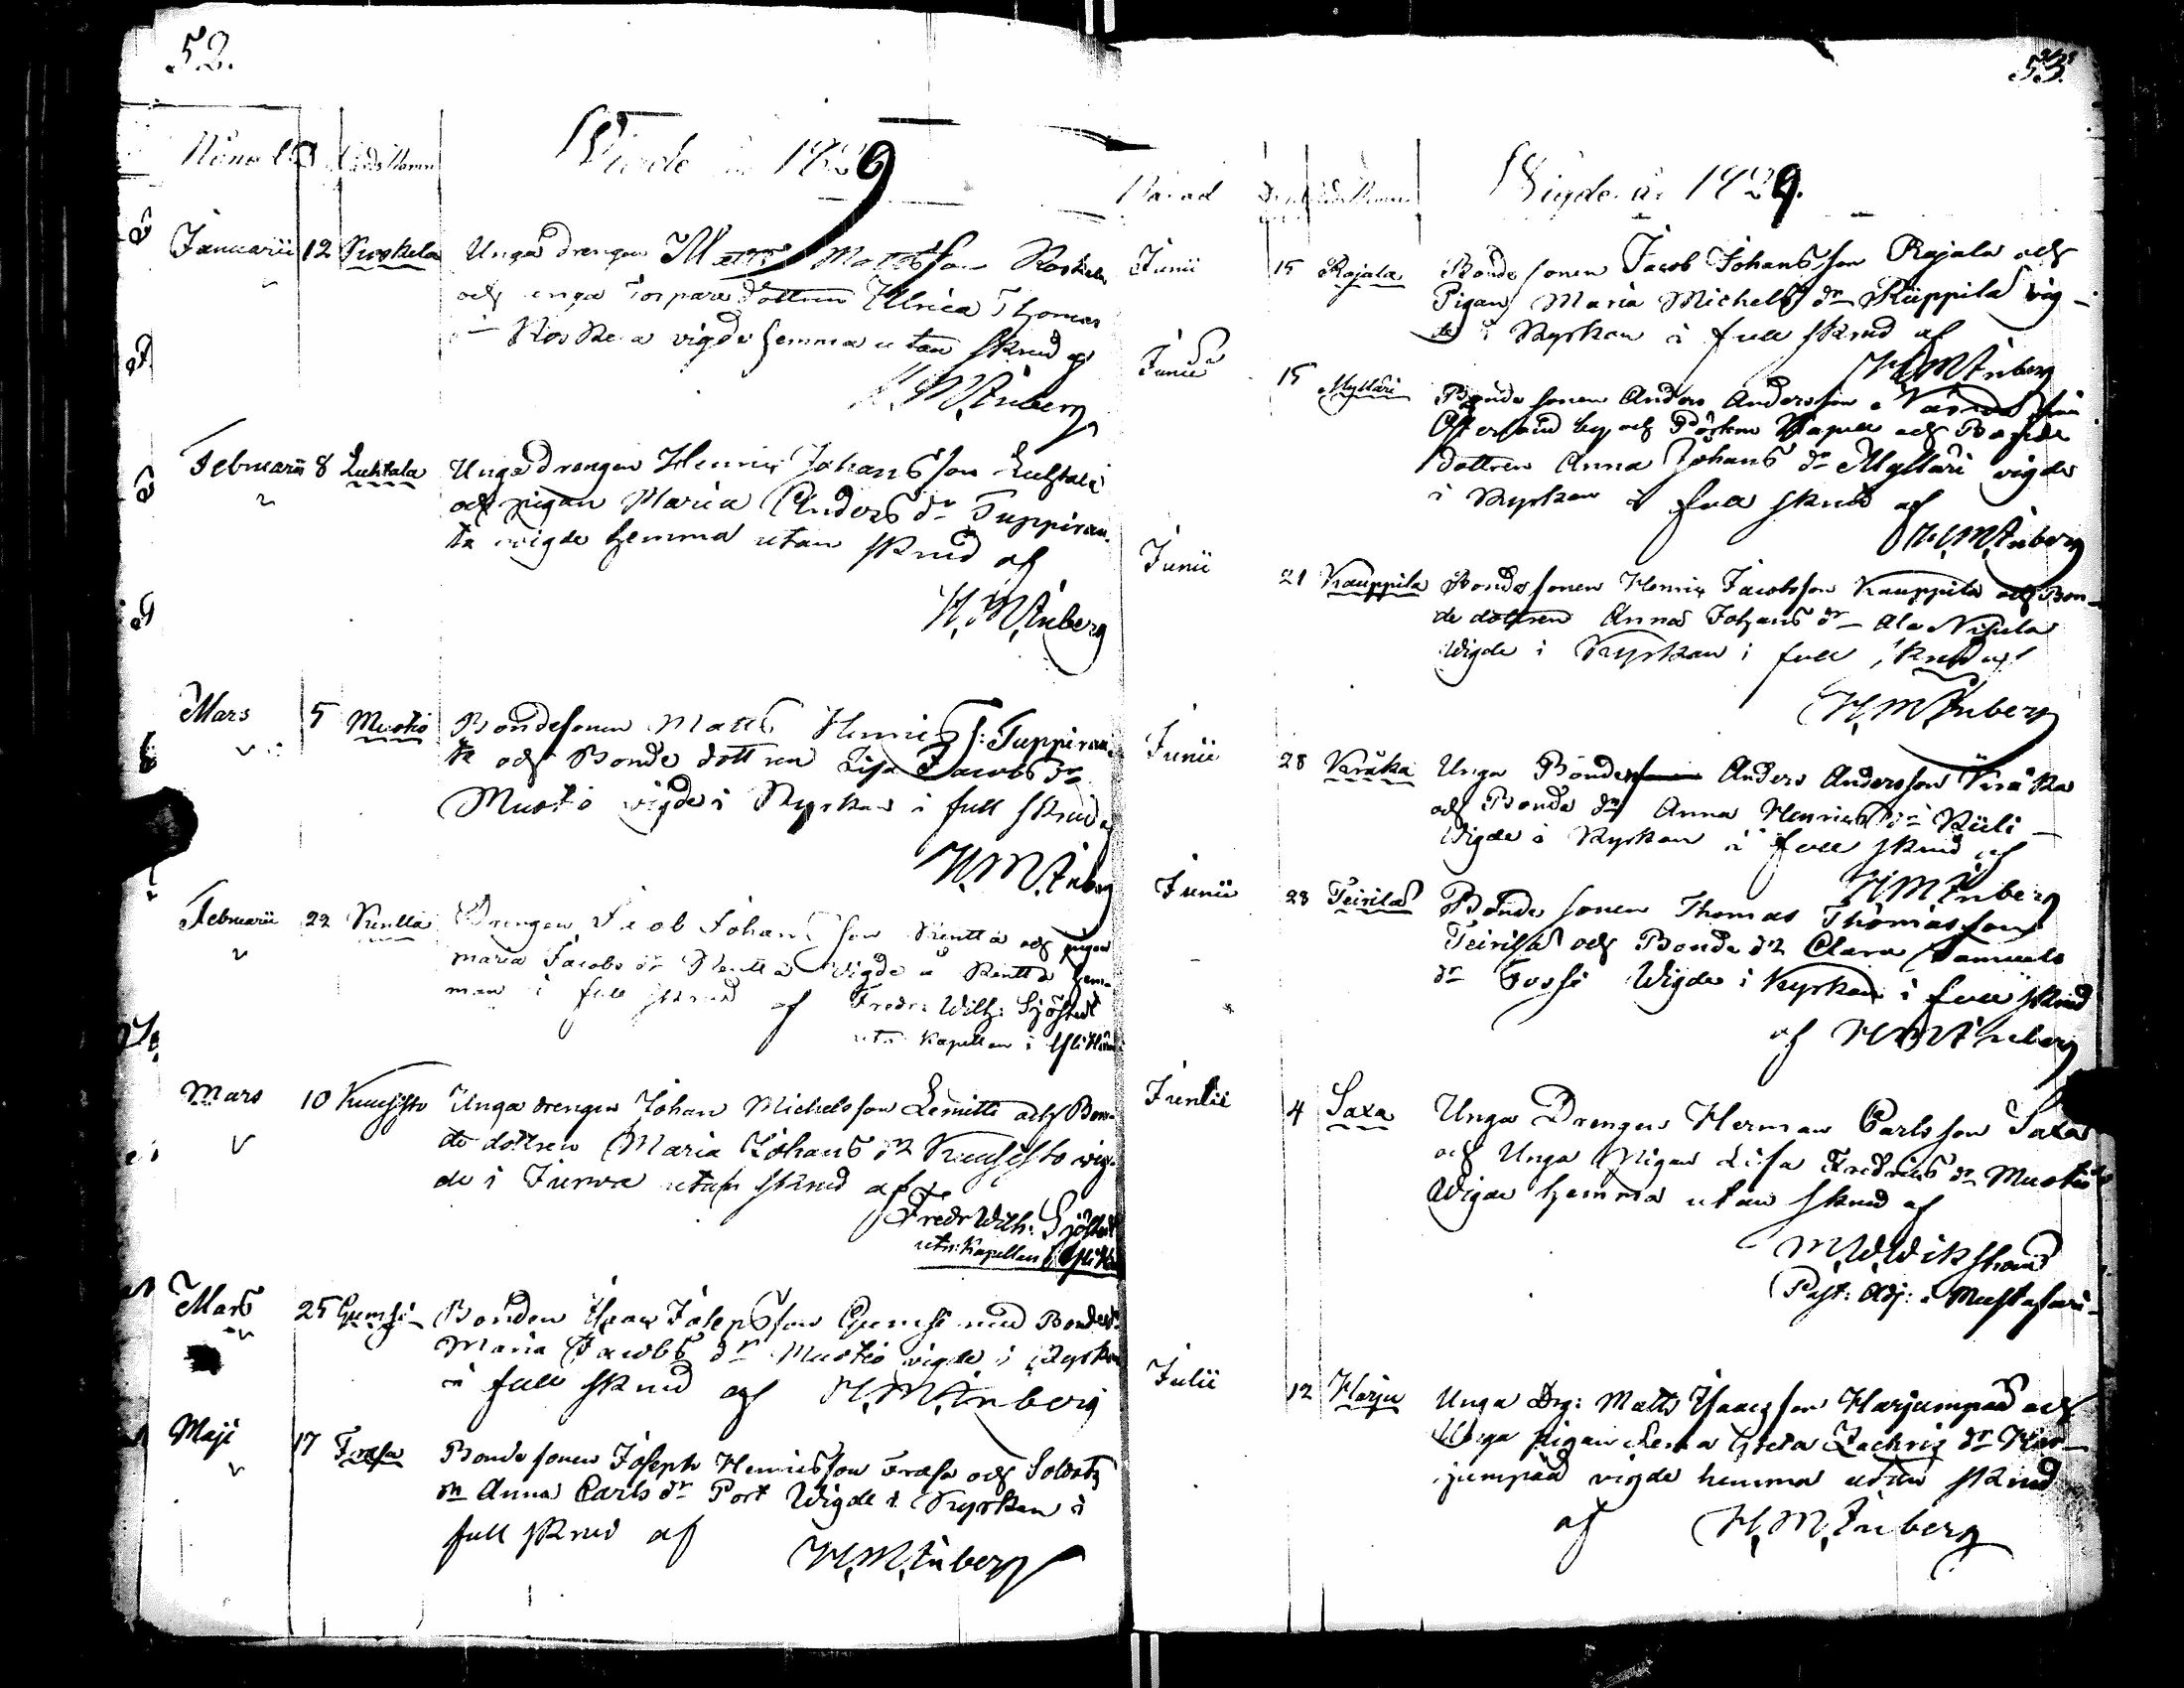 52.
Wigde år 1829
Januarii 12 Koskela Unga drengen Matts Mattsson Koskela
och unga Torpare dottren Ulrica Thomas
dr Koskela vigde hemma utan skrud af
H. M. Inberg
Februarii 8 Luhtala Unga drengen Henric Johansson Luhtala
och pigan Maria Anders dr Tuppiran-
ta vigde hemma utan skrud af
H. M. Inberg
Mars 5 Mustio Bondesonen Matts Henrics s: Tuppiran-
ta och Bonde dottren Lisa Jacobs dr
Mustio vigde i Kyrkan i full skrud af
H. M. Inberg
Februarii 22 Kentta Drengen Jacob Johansson Kentta och pigan
Maria Jacobs dr Kentta Vigde å Kentta hem-
man i full skrud af Fredr: Wilh: Sjöstedt
Kapellan i
Mars 10 Kuusisto Unga drengen Johan Michelsson Lemitti och Bon-
de dottren Maria Johans dr Kuusisto vig-
de i Jurva utan skrud af
Fredr Wilh: Sjöstedt
Kapellan
Mars 25 Gumsi Bonden Isaac Josephsson Gumsi med Bonde d.
Maria Jacobs dr Mustio vigde i Kyrkan
i full skrud af H. M. Inberg
Maji 17 Frasa Bonde sonen Joseph Henricsson Frasa och Soldats
dr Anna Carls dr Port Wigde i Kyrkan i
full skrud af
H. M. Inberg
53.
Månad
Wigde år 1829.
Junii 15 Rajala Bonde sonen Jacob Johansson Rajala och
Pigan Maria Michels dr Kuppila vig-
de i Kyrkan i full skrud af
H. M. Inberg
Junii 15 Myllari Bonde sonen Anders Andersson
by och Kapell och Bonde
dottren Anna Johans dr Myllari vigde
i Kyrkan i full skrud af
H. M. Inberg
Junii 21 Kauppila Bonde sonen Henric Jacobsson Kauppila och Bon-
de dottren Anna Johans dr Ala Nisula
Wigde i Kyrkan i full skrud af
H. M. Inberg
Junii 28 Kråka Unga Bonde Anders Andersson Kråka
och Bonde dr Anna Henrics dr Kiili
Wigde i Kyrkan i full skrud af
H. M. Inberg
Junii 28 Peirilä Bonde sonen Thomas Thomasson
Peirilä och Bonde dr Clara Samuels
dr Fossi Wigde i Kyrkan i full skrud
af H. M. Inberg
4 Saxa Unga Drengen Herman Carlsson Saxa
och Unga Pigan Lisa Fredrics dr Mustio
Wigde hemma utan skrud af
M. W. Wikstrand
Past: Adj: i Mustasari
Julii 12 Harju Unga Drg: Matts Isaacsson Harjumpää och
Unga pigan Lena Greta Zachris dr Har-
jumpää vigde hemma utan skrud
af H. M. Inberg